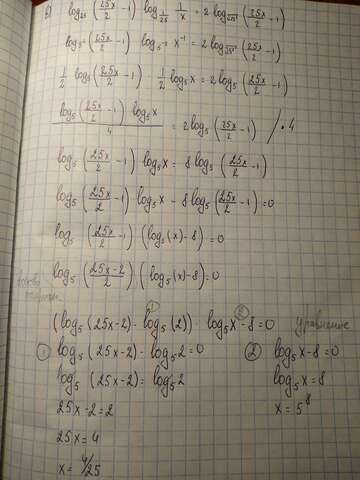 б) log₂₅ (25x/2 − 1) log_{1/25} 1/x = 2 log (25x/2 − 1)
log₅² (25x/2 − 1) log₅₋₂ x⁻¹ = 2 log (25x/2 − 1)
1/2 log₅ (25x/2 − 1) · 1/2 log₅ x = 2 log₅ (25x/2 − 1)
log₅ (25x/2 − 1) log₅ x / 4 = 2 log₅ (25x/2 − 1) / · 4
log₅ (25x/2 − 1) log₅ x = 8 log₅ (25x/2 − 1)
log₅ (25x/2 − 1) log₅ x − 8 log₅ (25x/2 − 1) = 0
log₅ (25x/2 − 1) (log₅ (x) − 8) = 0
log₅ (25x − 2/2) (log₅ (x) − 8) = 0
① ②
(log₅ (25x − 2) − log₅ (2)) · log₅ x − 8 = 0 уравнение
① log₅ (25x − 2) − log₅ 2 = 0 ② log₅ x − 8 = 0
log₅ (25x − 2) = log₅ 2 log₅ x = 8
25x − 2 = 2 x = 5⁸
25x = 4
x = 4/25